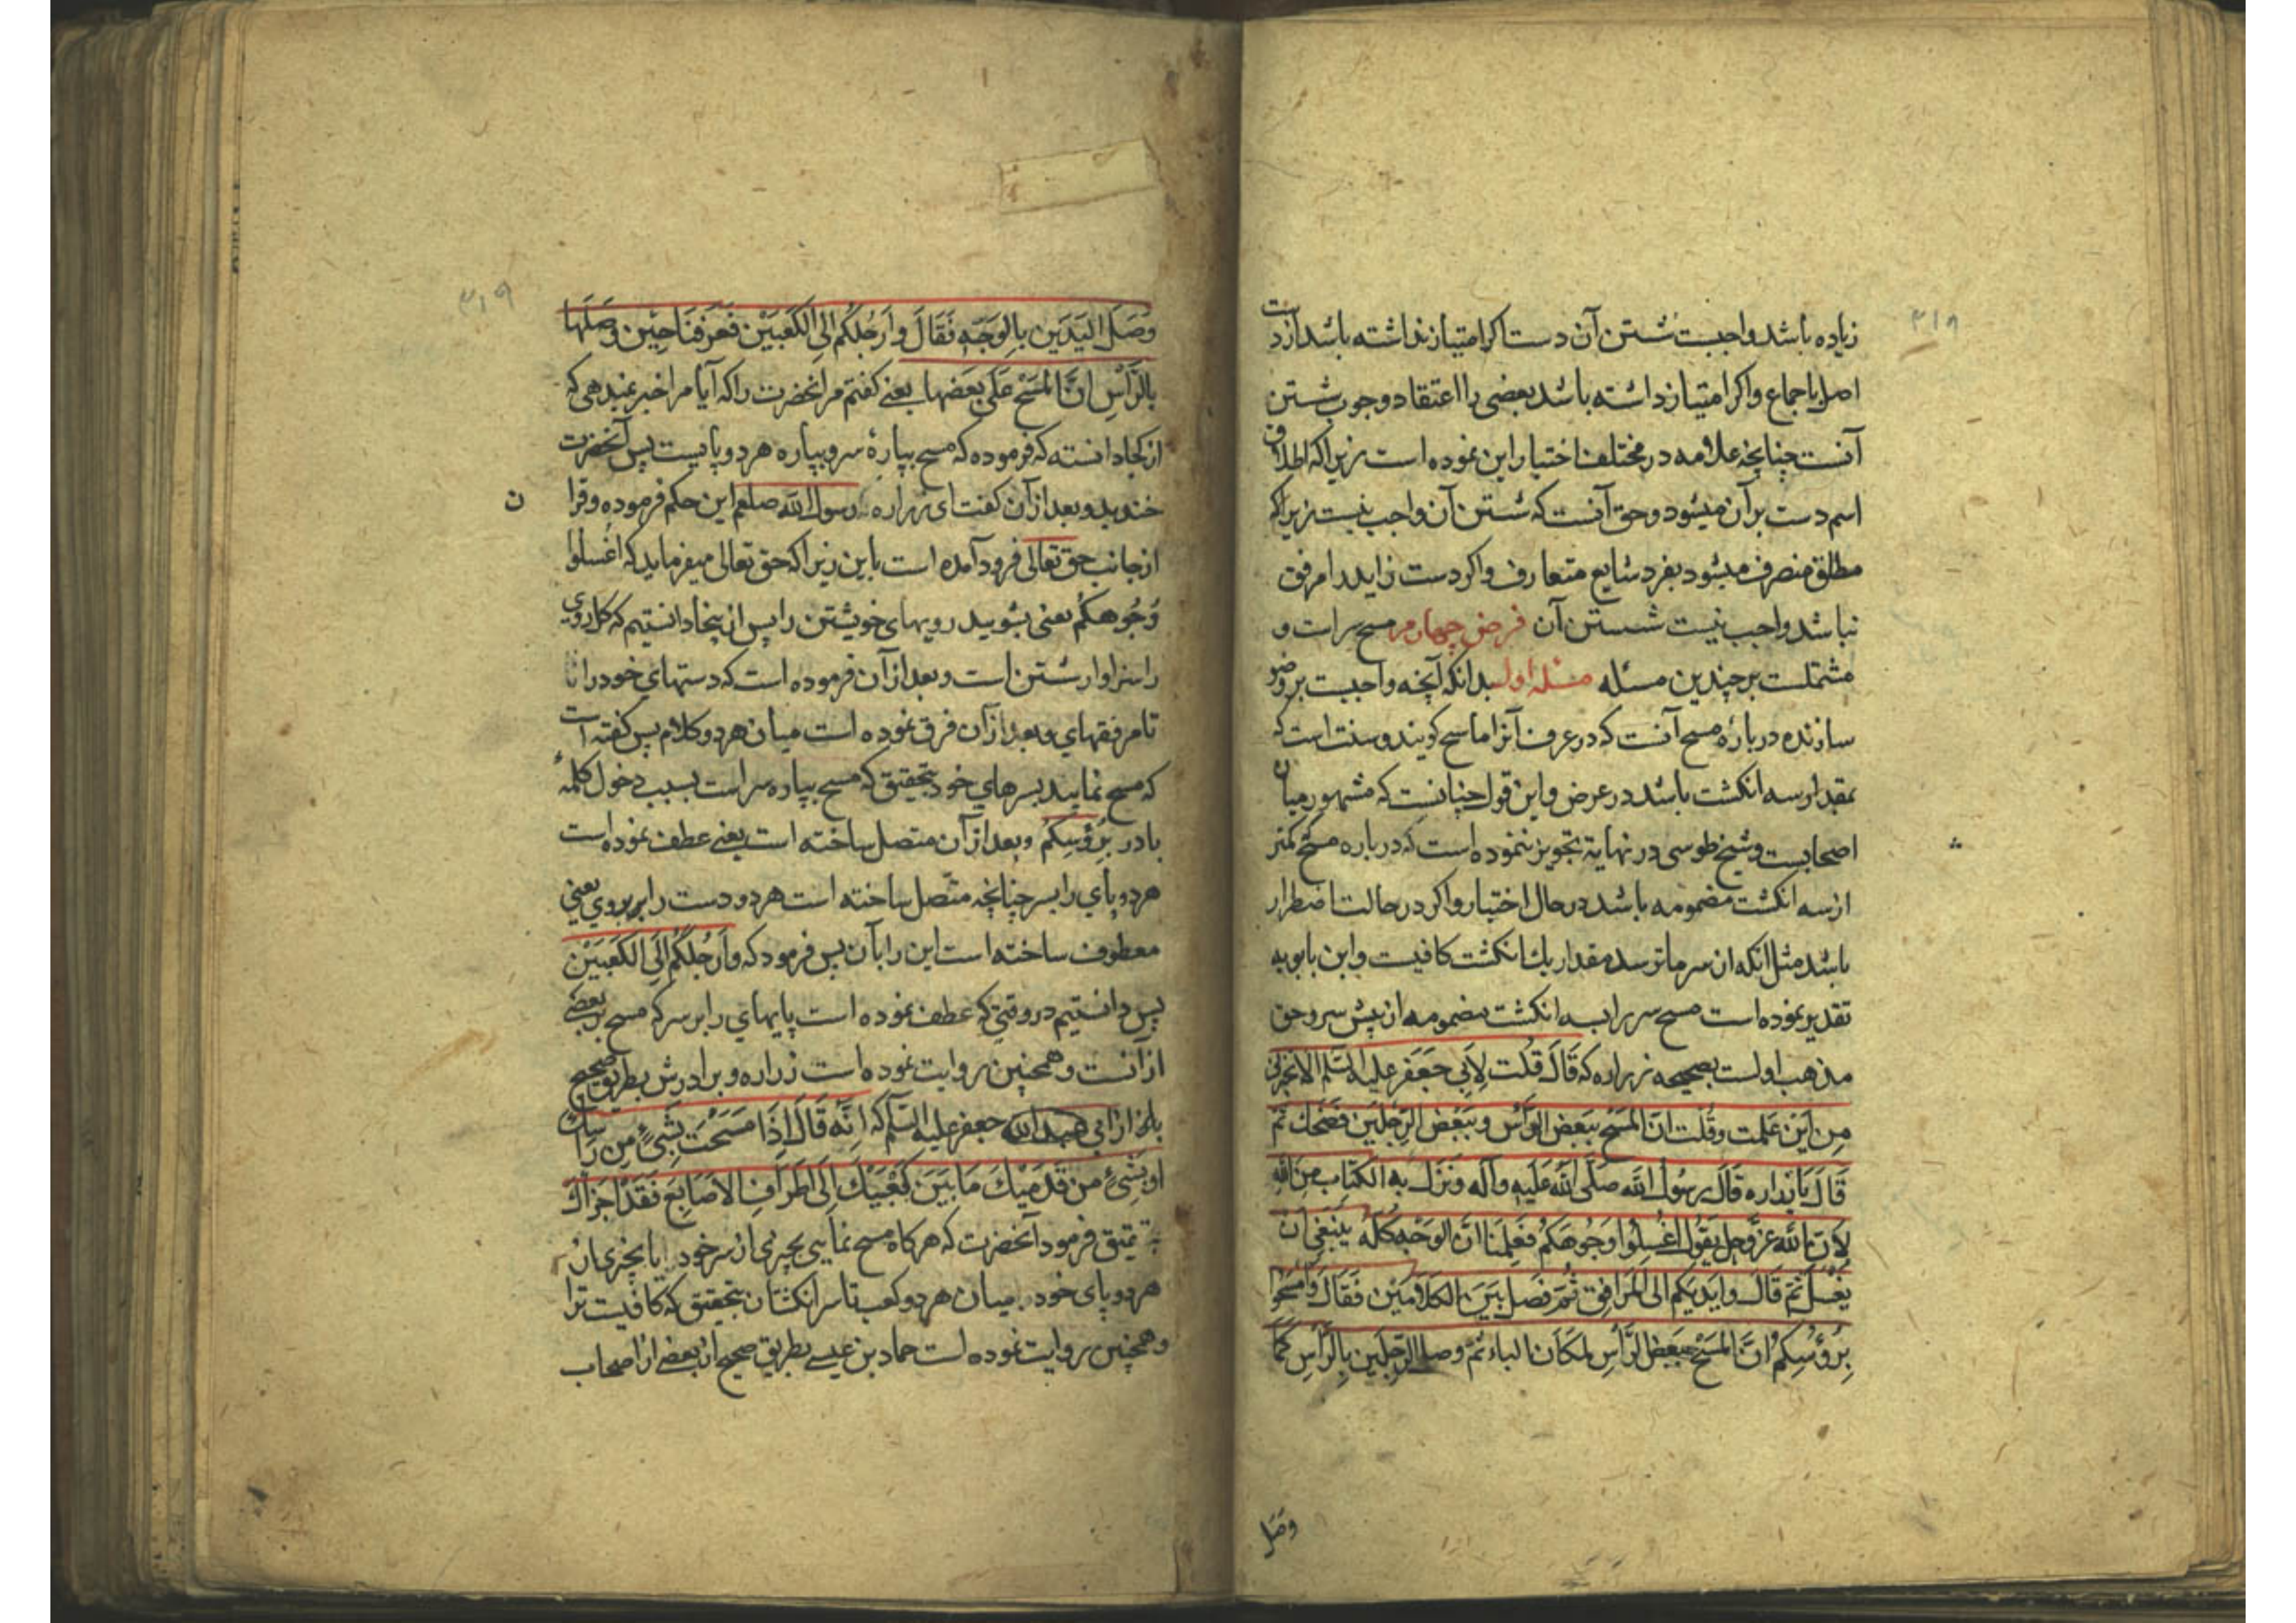 ۳۱۹
زیاده باشد واجبست شستن آن دست اکر امتیاز نداشته باشد از دست
اصل باجماع واکر امتیاز داشته باشد بعضی را اعتقاد وجوب شستن
آنست چنانچه علامه در مختلف اختیار این نموده است زیرا که اطلاق
اسم دست بر آن میشود وحق آنست که شستن آن واجب نیست زیرا که
مطلق منصرف میشود بفرد شایع متعارف واکر دست زاید را مرفق
نباشد واجب نیست شستن آن فرض چهارم مسح سر است و
مشتملست بر چندین مسئله مسئله اول بدانکه آنچه واجبست بر وضو
سازنده در باره مسح آنست که در عرف آنرا ماسح کویند و سنت است که
بمقدار سه انکشت باشد در عرض واین قول چنانست که مشهور میان
اصحابست وشیخ طوسی در نهایة تجویز ننموده است که در باره مسح کمتر
از سه انکشت مضمومه باشد در حال اختیار واکر در حالت اضطرار
باشد مثل انکه از سرما ترسد مقدار یك انکشت کافیست وابن بابویه
تقدیر نموده است مسح سر را بسه انکشت مضمومه از پیش سر وحق
مذهب اولست بصحیحه زراره که قَالَ قُلْت لِاَبِي جَعْفَر علیه السّلم اَلا تخبرنی
مِن اَیْن عَلِمت وقُلت انّ المسْحَ ببَعْضِ الرَّأس وببَعْض الرّجلَین فَضَحك ثمّ
قَالَ یَا زراره قَالَ رسُولُ الله صَلَّی اللهُ عَلَیهِ وآله وَنَزَل به الکتَاب مِنَ اللهِ
لاَنّ الله عزّ وجلّ یَقُول اغْسِلُوا وجُوهَکُم فَعَلِمْنا انّ الوَجْه کُلّه یَنْبَغی اَن
یُغْسَل ثُمّ قَالَ وایدیکم الی المَرَافِق ثُمّ فَصَل بَیَنَ الکَلاَمَیْن فَقَالَ وامْسَحُوا
بِرُؤُسِکُم انّ المَسْحَ ببَعْضِ الرَّأسِ لمَکَانَ الباء ثمّ وصل الرّجلَین بِالرّأسِ کَمَا
وصَلَ
۳۱۹
وَصَلَ الیَدَین بالوَجْهِ فَقَالَ وَاَرْجُلَکُم الی الکَعْبَیْن فَعَرَفنَا حِیْن وصَلَهَا
بالرَّأسِ انَّ المَسْحَ عَلی بَعضِهَا یعنی کفتم مر انحضرت را که آیا مرا خبر نمیدهی که
از کجا دانسته که فرموده که مسح بپارۀ سر وبپاره هر دو پایست پس آنحضرت
خندید وبعد از آن کفت ای زراره رسول الله صلعم این حکم فرموده وقرا
ن
از جانب حق تعالی فرود آمده است باین زیرا که حق تعالی میفرماید که اغسلوا
وُجُوهکُم یعنی بشویید رویهای خویشتن را پس از ینجا دانستیم که کل روی
را سزاوار شستن است وبعد از آن فرموده است که دستهای خود را تا
تا مرفقهای وبعد از آن فرق نموده است میان هر دو کلام پس کفته است
که مسح نمایید بسرهای خود بتحقیق که مسح بپاره سر است بسبب دخول کلمۀ
با در بِرُؤسِکُم وبعد از آن متصل ساخته است یعنی عطف نموده است
هر دو پای را بسر چنانچه متّصل ساخته است هر دو دست را بر روی یعنی
معطوف ساخته است این را بآن پس فرمود که وَاَرْجُلَکُم اِلَی الکَعْبَیْن
پس دانستیم در وقتی که عطف نموده است پایهای را بر سر که مسح بر بعضی
از آنست وهمچنین روایت نموده است زراره وبرادرش بطریق صحیح
از ابی جعفر علیه السّلم که انّه قَالَ اِذَا مَسَحْتَ بِشَیْءٍ مِن رَأسِك
اَو بِشَیْءٍ مِن قَدَمَیْكَ مَا بَیَنَ کَعْبَیْكَ اِلَی اَطْرَافِ الاَصَابِع فَقَدْ اَجْزَاَكَ
بتحقیق فرمود آنحضرت که هر کاه مسح نمایی بچیزی از سر خود یا بچیزی از
هر دو پای خود میان هر دو کعب تا سر انکشتان بتحقیق که کافیست ترا
وهمچنین روایت نموده است حماد بن عیسی بطریق صحیح از بعضی از اصحاب